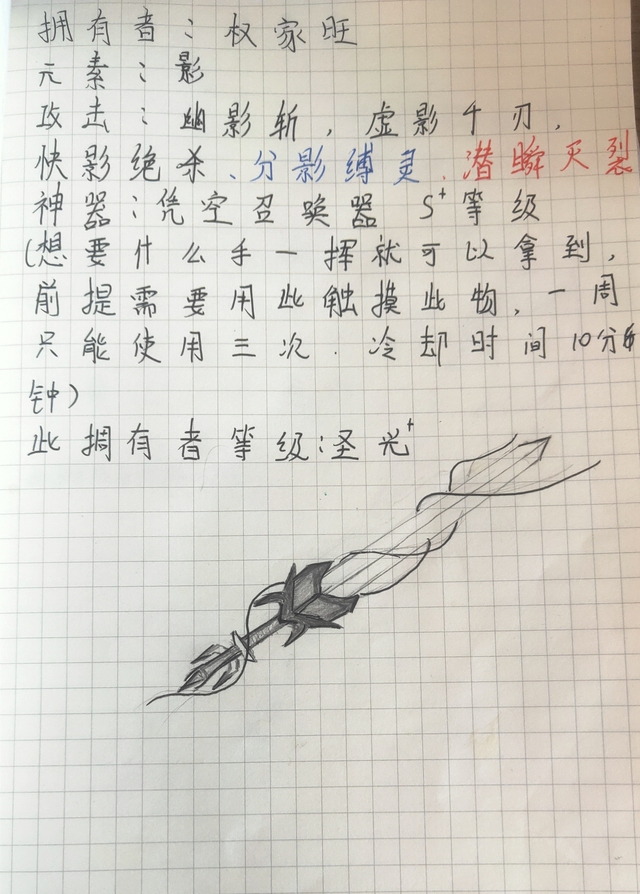 拥有者：权家旺
元素：影
攻击：幽影斩，虚影千刃，
快影绝杀、分影缚灵、潜瞬灭裂
神器：凭空召唤器 S+等级
(想要什么手一挥就可以拿到，
前提需要用此触摸此物，一周
只能使用三次．冷却时间10分
钟)
此拥有者等级：圣光+